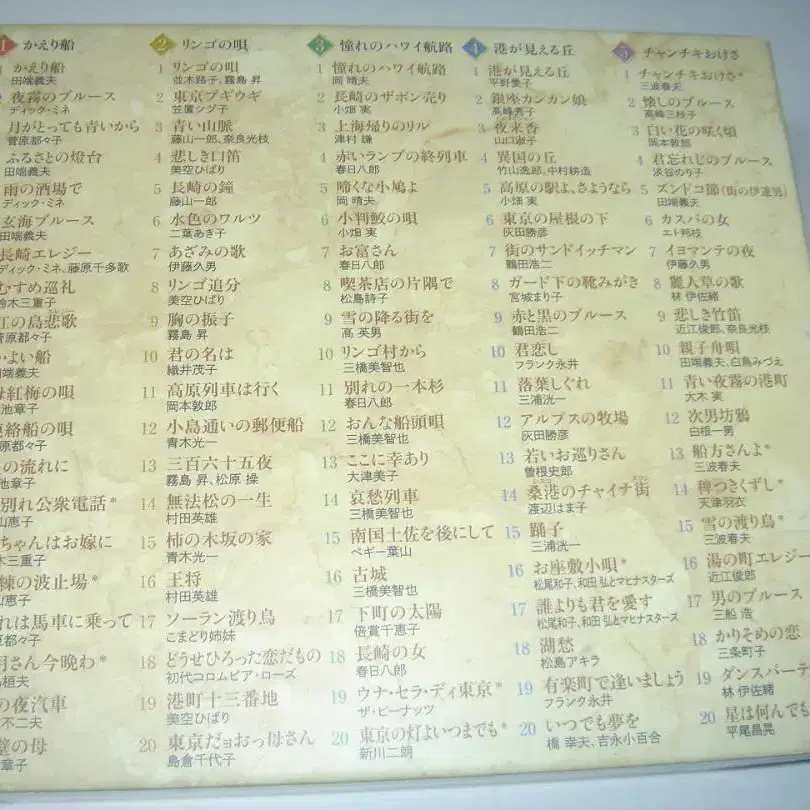 1 かえり船
かえり船
田端義夫
夜霧のブルース
ディック・ミネ
月がとっても青いから
菅原都々子
ふるさとの燈台
田端義夫
雨の酒場で
ディック・ミネ
玄海ブルース
田端義夫
長崎エレジー
ディック・ミネ、藤原千多歌
むすめ巡礼
鈴木三重子
江の島悲歌
菅原都々子
かよい船
田端義夫
母紅梅の唄
池章子
連絡船の唄
菅原都々子
の流れに
池章子
別れ公衆電話*
山恵子
ちゃんはお嫁に
木三重子
練の波止場*
山恵子
れは馬車に乗って
原都々子
月さん今晩わ*
桓夫
の夜汽車
不二夫
壁の母
章子
2 リンゴの唄
1 リンゴの唄
並木路子、霧島 昇
2 東京ブギウギ
笠置シヅ子
3 青い山脈
藤山一郎、奈良光枝
4 悲しき口笛
美空ひばり
5 長崎の鐘
藤山一郎
6 水色のワルツ
二葉あき子
7 あざみの歌
伊藤久男
8 リンゴ追分
美空ひばり
9 胸の振子
霧島 昇
10 君の名は
織井茂子
11 高原列車は行く
岡本敦郎
12 小島通いの郵便船
青木光一
13 三百六十五夜
霧島 昇、松原 操
14 無法松の一生
村田英雄
15 柿の木坂の家
青木光一
16 王将
村田英雄
17 ソーラン渡り鳥
こまどり姉妹
18 どうせひろった恋だもの
初代コロムビア・ローズ
19 港町十三番地
美空ひばり
20 東京だョおっ母さん
島倉千代子
3 憧れのハワイ航路
1 憧れのハワイ航路
岡 晴夫
2 長崎のザボン売り
小畑 実
3 上海帰りのリル
津村 謙
4 赤いランプの終列車
春日八郎
5 啼くな小鳩よ
岡 晴夫
6 小判鮫の唄
小畑 実
7 お富さん
春日八郎
8 喫茶店の片隅で
松島詩子
9 雪の降る街を
高 英男
10 リンゴ村から
三橋美智也
11 別れの一本杉
春日八郎
12 おんな船頭唄
三橋美智也
13 ここに幸あり
大津美子
14 哀愁列車
三橋美智也
15 南国土佐を後にして
ペギー葉山
16 古城
三橋美智也
17 下町の太陽
倍賞千恵子
18 長崎の女
春日八郎
19 ウナ・セラ・ディ東京*
ザ・ピーナッツ
20 東京の灯よいつまでも*
新川二朗
4 港が見える丘
1 港が見える丘
平野愛子
2 銀座カンカン娘
高峰秀子
3 夜来香
山口淑子
4 異国の丘
竹山逸郎、中村耕造
5 高原の駅よ、さようなら
小畑 実
6 東京の屋根の下
灰田勝彦
7 街のサンドイッチマン
鶴田浩二
8 ガード下の靴みがき
宮城まり子
9 赤と黒のブルース
鶴田浩二
10 君恋し
フランク永井
11 落葉しぐれ
三浦洸一
12 アルプスの牧場
灰田勝彦
13 若いお巡りさん
曽根史郎
14 桑港のチャイナ街
渡辺はま子
15 踊子
三浦洸一
16 お座敷小唄*
松尾和子、和田 弘とマヒナスターズ
17 誰よりも君を愛す
松尾和子、和田 弘とマヒナスターズ
18 湖愁
松島アキラ
19 有楽町で逢いましょう
フランク永井
20 いつでも夢を
橋 幸夫、吉永小百合
5 チャンチキおけさ
1 チャンチキおけさ*
三波春夫
2 懐しのブルース
高峰三枝子
3 白い花の咲く頃
岡本敦郎
4 君忘れじのブルース
淡谷のり子
5 ズンドコ節(街の伊達男)
田端義夫
6 カスバの女
エト邦枝
7 イヨマンテの夜
伊藤久男
8 麗人草の歌
林 伊佐緒
9 悲しき竹笛
近江俊郎、奈良光枝
10 親子舟唄
田端義夫、白鳥みづえ
11 青い夜霧の港町
大木 実
12 次男坊鴉
白根一男
13 船方さんよ*
三波春夫
14 稗つきくずし*
天津羽衣
15 雪の渡り鳥*
三波春夫
16 湯の町エレジー
近江俊郎
17 男のブルース
三船 浩
18 かりそめの恋
三条町子
19 ダンスパーテ
林 伊佐緒
20 星は何んでも
平尾昌晃